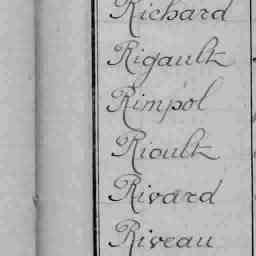 Richard
Rigault
Rimpol
Rioult
Rivard
Riveau